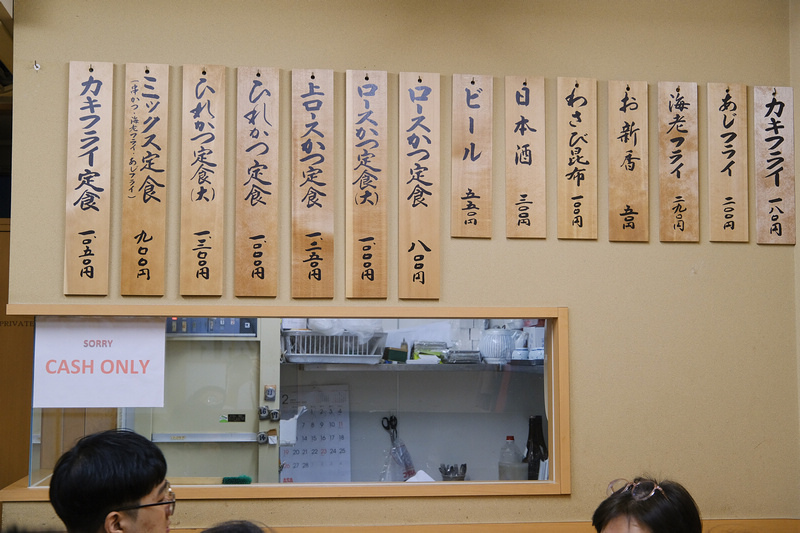 カキフライ定食 一、〇五〇円
ミックス定食
(串かつ・海老フライ・あじフライ)
九〇〇円
ひれかつ定食(大) 一、三〇〇円
ひれかつ定食 一、〇〇〇円
上ロースかつ定食 一、二五〇円
ロースかつ定食(大) 一、〇〇〇円
ロースかつ定食 八〇〇円
ビール 五五〇円
日本酒 三〇〇円
わさび昆布 一〇〇円
お新香 五〇円
海老フライ 二九〇円
あじフライ 二〇〇円
カキフライ 一八〇円
PRIVATE
SORRY
CASH ONLY